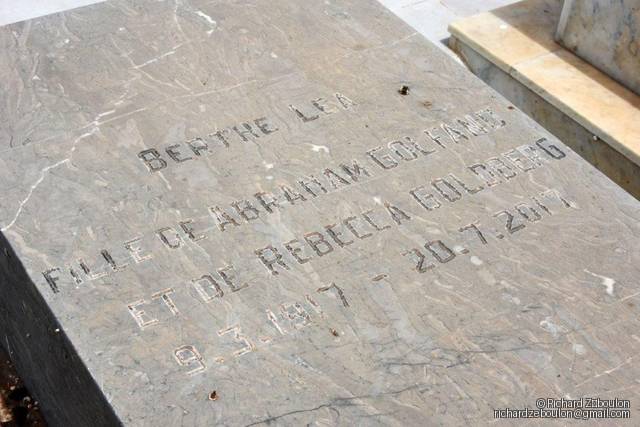 BERTHE LEA
FILLE DE ABRAHAM GOLFAND
ET DE REBECCA GOLDBERG
9.3.1917 - 20.7.2017
© Richard ZEboulon
richardzeboulon@gmail.com